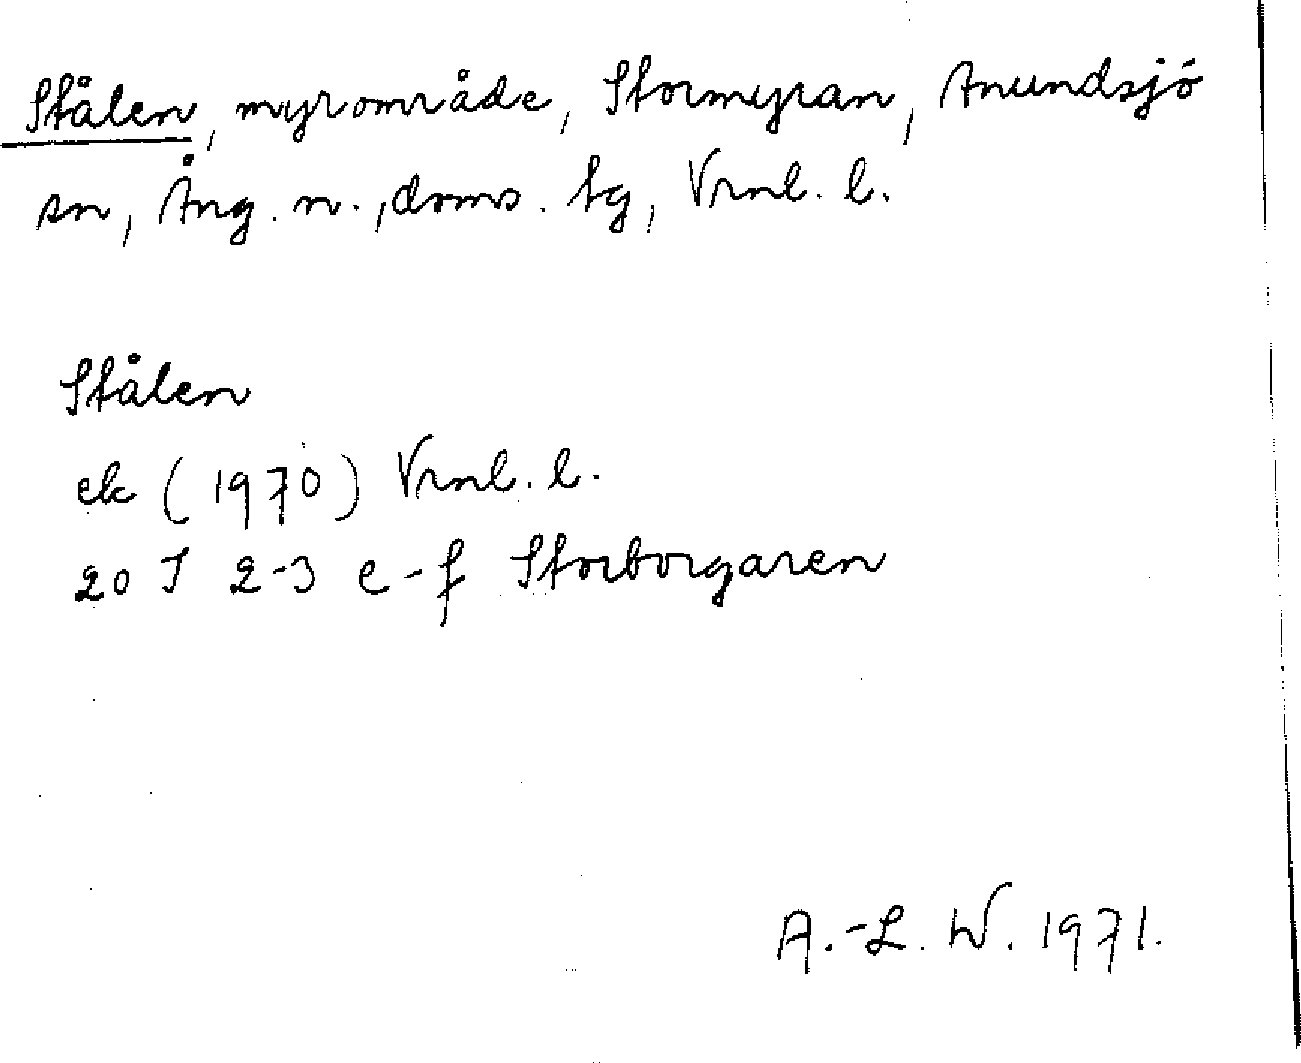 Stålen, myrområde, Stormyran, Anundsjö
sn, Ång. n., doms. tg, Vrnl. l.
Stålen
ek (1970) Vrnl. l.
20 J 2-3 e-f Storborgaren
A.-L. W. 1971.